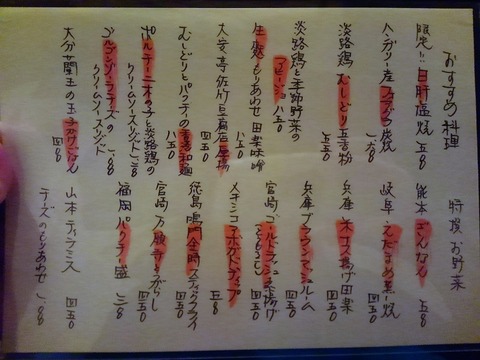 おすすめ料理
限定!! 白肝塩焼 五八〇
ハンガリー産フォアグラ炭焼
淡路鶏むしどり五香粉 五五〇
淡路鶏と季節野菜の
アヒージョ 八五〇
生麩もりあわせ 田楽味噌 八五〇
大安亭佐竹豆腐店厚揚 四五〇
むしどりとパクチの香港和麺 八五〇
ポルチーニ木の子と淡路鶏の
クリームソースリゾット
ゴルゴンゾーラチーズの
クリームソースリゾット
大分蘭王の玉子かけごはん 四八〇
特撰お野菜
熊本 れんこん 五八〇
岐阜 えだまめ黒こしょう焼
兵庫 米ナス揚げ田楽 四五〇
兵庫 ブラウンマッシュルーム 五五〇
宮崎 ゴールドラッシュ天ぷら揚げ
(とうもろこし) 四五〇
メキシコ アボカドディップ 五八〇
徳島 鳴門金時スティックフライ 四五〇
宮崎 万願寺とうがらし 四五〇
福岡 パクチー盛 三八〇
山本ティラミス 四五〇
チーズのもりあわせ